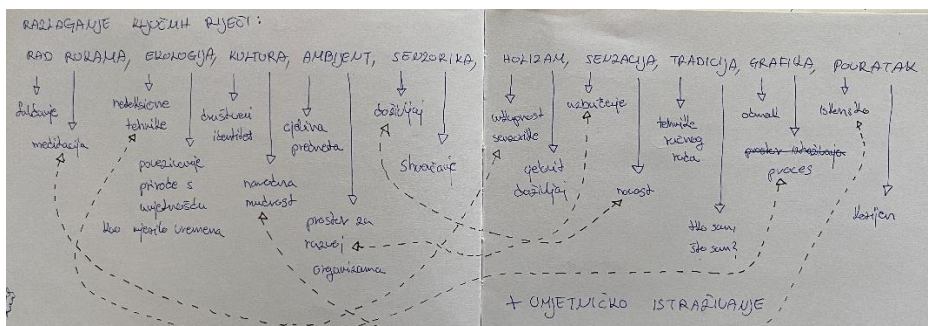 RAZLAGANJE KLJUČNIH RIJEČI:
RAD RUKAMA, EKOLOGIJA, KULTURA, AMBIJENT, SENZORIKA, HOLIZAM, SENZACIJA, TRADICIJA, GRAFIKA, POVRATAK
meditacija
netoksične
tehnike
povezivanje
prirode s
umjetnošću
kao mjerilo vremena
društveni
identitet
narodna
mudrost
cjelina
predmeta
prostor za
razvoj
organizama
doživljaj
shvaćanje
ukupnost
senzorike
doživljaj
uzbuđenje
novost
tehnike
ručnog
rada
tko sam,
što sam?
odmak
proces
iskonsko
korijen
+ UMJETNIČKO ISTRAŽIVANJE